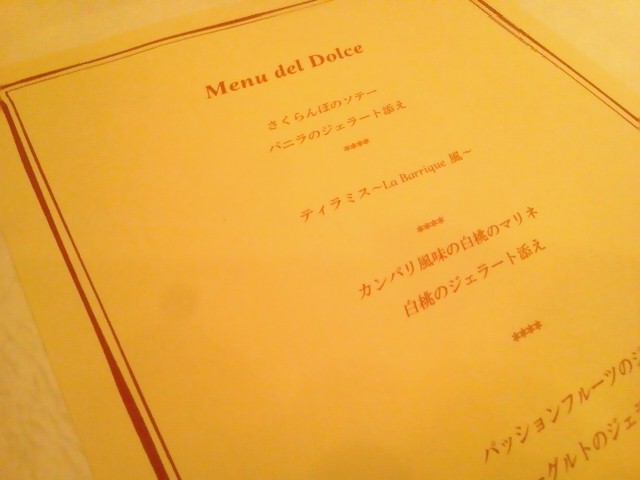 Menu del Dolce
さくらんぼのソテー
バニラのジェラート添え
****
ティラミス~La Barrique 風~
****
カンパリ風味の白桃のマリネ
白桃のジェラート添え
****
パッションフルーツの
グルトのジェ